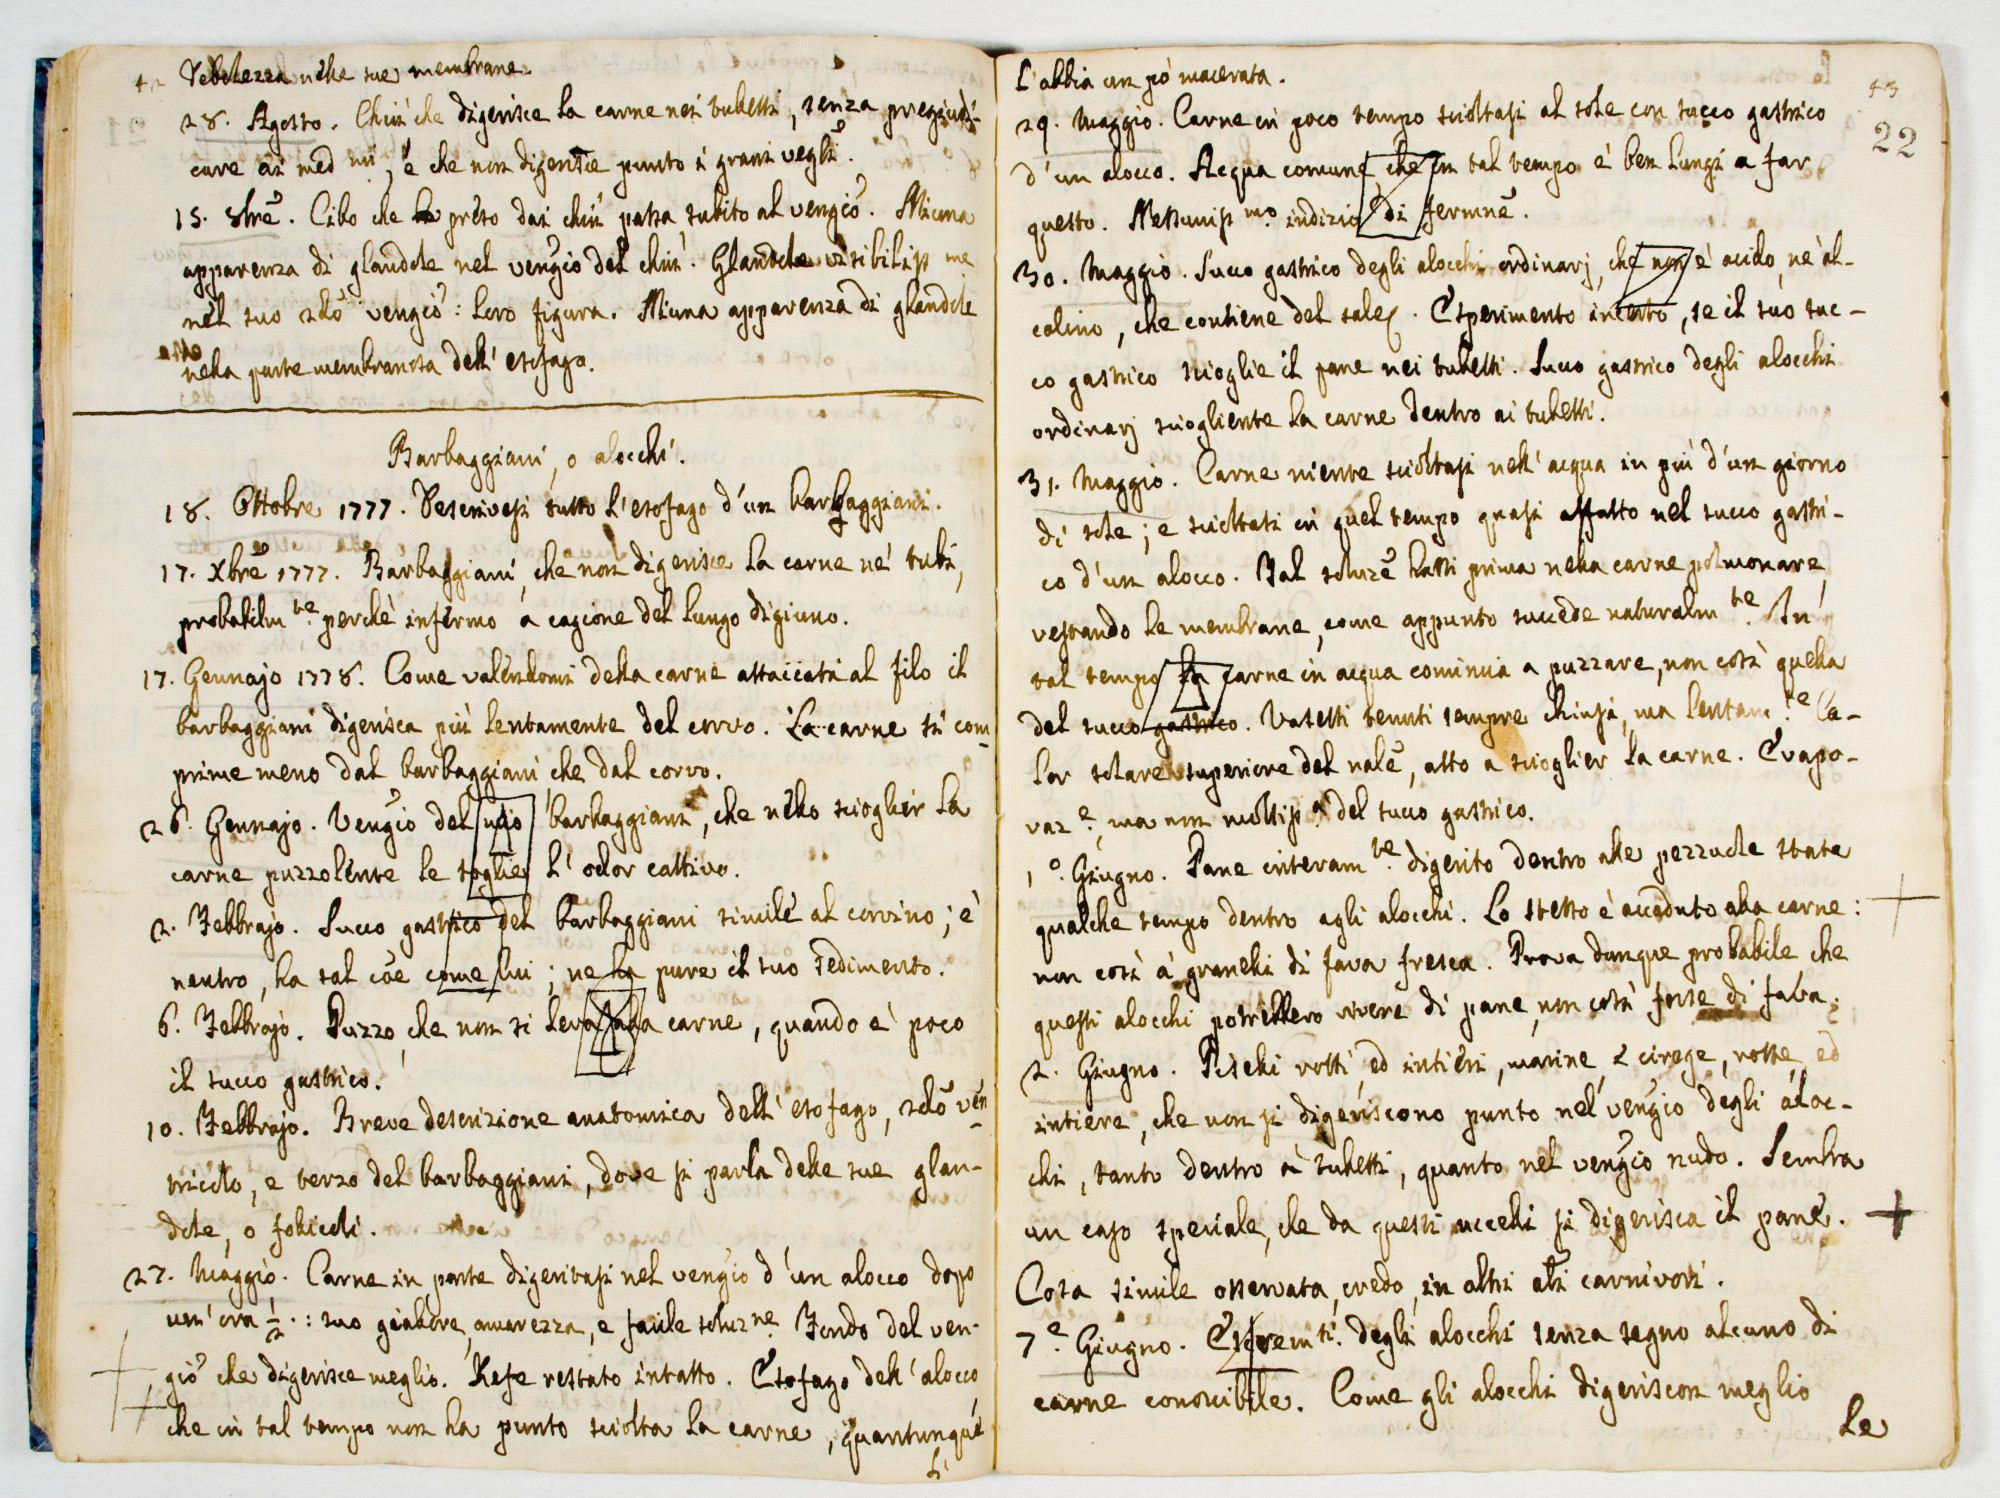 42
Debolezza nelle sue membrane.
28. Agosto. Chiù che digerisce la carne nei tubetti, senza preggiudi-
care ai med.mi, e che non digerisce punto i grani vegli.
15. 8bre. Cibo che ha preso dai chiù passa subito al vengio. Niuna
apparenza di glandole nel vengio del chiù. Glandole visibilissime
nel suo 2do vengio: loro figura. Niuna apparenza di glandole
nella parte membranosa dell' esofago.
Barbaggiani, o alocchi.
18. Ottobre 1777. Descrivesi tutto l'esofago d'un barbaggiani.
17. Xbre 1777. Barbaggiani, che non digerisce la carne ne' tubi,
probabilmte. perchè infermo a cagione del lungo digiuno.
17. Gennajo 1778. Come valendomi della carne attaccata al filo il
barbaggiani digerisca più lentamente del corvo. La carne si com-
prime meno dal barbaggiani che dal corvo.
26. Gennajo. Vengio del barbaggiani, che nello scioglier la
carne puzzolente le toglie l' odor cattivo.
2. Febbrajo. Succo gastrico del barbaggiani simile al corvino; è
neutro, ha sal coe come lui; ne ha pure il suo sedimento.
6. Febbrajo. Puzzo, che non si leva alla carne, quando e' poco
il succo gastrico.
10. Febbrajo. Breve descrizione anatomica dell' esofago, 2do ven
tricolo, e terzo del barbaggiani, dove si parla delle sue glan-
dole, o follicoli.
27. Maggio. Carne in parte digeritasi nel vengio d'un alocco dopo
un' ora 1/2.: suo giallore, amarezza, e facile soluzne. Fondo del ven-
gio che digerisce meglio. Refe restato intatto. Esofago dell' alocco
che in tal tempo non ha punto sciolta la carne, quantunque
l'
43
22
L'abbia un po' macerata.
29. Maggio. Carne in poco tempo scioltasi al sole con succo gastrico
d'un alocco. Acqua comune, che in tal tempo è ben lungi a far
questo. Nessunissmo. indizio di fermne.
30. Maggio. Succo gastrico degli alocchi ordinarj, che non è acido, nè al-
calino, che contiene del sale. Esperimento incerto, se il suo suc-
co gastrico scioglie il pane nei tubetti. Succo gastrico degli alocchi
ordinarj sciogliente la carne dentro ai tubetti.
31. Maggio. Carne niente scioltasi nell' acqua in più d'un giorno
di sole; e scioltasi in quel tempo quasi affatto nel succo gastri-
co d'un alocco. Tal soluze hassi prima nella carne polmonare,
restando le membrane, come appunto succede naturalmte. In
tal tempo la carne in acqua comincia a puzzare, non così quella
del succo gastrico. Vasetti tenuti sempre chiusi, ma lentamte. Ca-
lor solare superiore del nale, atto a scioglier la carne. Evapo-
raze., ma non moltissa. del succo gastrico.
1°. Giugno. Pane interamte. digerito dentro alle pezzuole state
qualche tempo dentro agli alocchi. Lo stesso è accaduto alla carne:
non così a' granelli di fava fresca. Prova dunque probabile che
questi alocchi potrebbero vivere di pane, non così forse di fava.
2. Giugno. Piselli rotti, ed intieri, marine, e cirege, rotte, ed
intiere, che non si digeriscono punto nel vengio degli aloc-
chi, tanto dentro a' tubetti, quanto nel vengio nudo. Sembra
un caso speciale, che da questi uccelli si digerisca il pane.
Cosa simile osservata, credo, in altri ali carnivori.
7e. Giugno. Escremti. degli alocchi senza segno alcuno di
carne conoscibile. Come gli alocchi digeriscon meglio
le